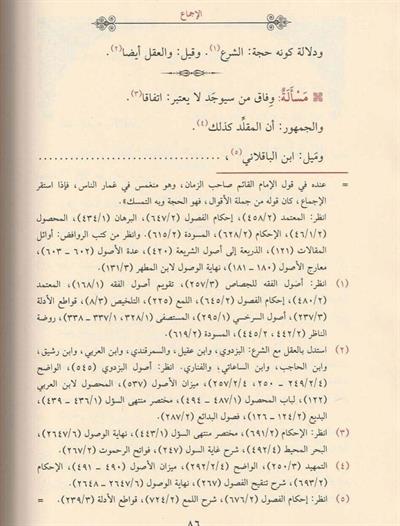 الإجماع
ودلالة كونه حجة: الشرع(١). وقيل: والعقل أيضا(٢).
مَسْأَلَة: وِفاق من سيوجَد لا يعتبر: اتفاقا(٣).
والجمهور: أن المقلِّد كذلك(٤).
وميل: ابن الباقلاني(٥)، ......................................
= عنده في قول الإمام القائم صاحب الزمان، وهو منغمس في غمار الناس، فإذا استقر
الإجماع، كان قوله من جملة الأقوال، فهو الحجة وبه التمسك».
انظر: المعتمد (٤٥٨/٢)، إحكام الفصول (٦٤٧/٢)، البرهان (٤٣٤/١)، المحصول
(٤٦/١/٢)، الإحكام (٦٢٨/٢)، المسودة (٦١٥/٢). وانظر من كتب الروافض: أوائل
المقالات (١٢١)، الذريعة إلى أصول الشريعة (٤٢٠)، عدة الأصول (٦٠٢ – ٦٠٣)،
معارج الأصول (١٨٠ – ١٨١)، نهاية الوصول لابن المطهر (١٣١/٣).
(١) انظر: أصول الفقه للجصاص (٢٥٧/٣)، تقويم أصول الفقه (١٦٨/١)، المعتمد
(٤٨٠/٢)، إحكام الفصول (٦٤٥/٢)، اللمع (٢٢٥)، التلخيص (٨/٣)، قواطع الأدلة
(٢٣٧/٣)، أصول السرخسي (٢٩٥/١)، المستصفى (٣٢٨/١، ٣٣٧/١ – ٣٣٨)، روضة
الناظر (٤٤٢/٢، ٤٤٥/٢)، المسودة (٦١٩/٢).
(٢) استدل بالعقل مع الشرع: البزدوي، وابن عقيل، والسمرقندي، وابن العربي، وابن رشيق،
وابن الحاجب، وابن الساعاتي، والفناري. انظر: أصول البزدوي (٥٤٥)، الواضح
(٢٤٩/٢/٤ – ٢٥٠، ٢٥٧/٢/٤)، ميزان الأصول (٥٣٧)، المحصول لابن العربي
(١٢٢)، لباب المحصول (٤٨٧/١ – ٤٩٤)، مختصر منتهى السؤل (٤٣٦/١ – ٤٣٩)،
البديع (١٢٤/٢ – ١٢٦)، فصول البدائع (٢٨٧/٢).
(٣) انظر: الإحكام (٦٩١/٢)، مختصر منتهى السؤل (٤٤٣/١)، نهاية الوصول (٢٦٤٧/٦)،
البحر المحيط (٤٩٢/٤)، شرح غاية السول (٢٤٧)، فواتح الرحموت (٢٦٧/٢).
(٤) التمهيد (٢٥٠/٣)، الواضح (٢٩٢/٢/٤)، ميزان الأصول (٤٩٠ – ٤٩١)، الإحكام
(٦٩٣/٢)، شرح تنقيح الفصول (٢٦٧)، نهاية الوصول (٢٦٤٧/٦ – ٢٦٤٨).
(٥) انظر: إحكام الفصول (٦٧٦/٢)، شرح اللمع (٧٢٤/٢)، قواطع الأدلة (٢٣٩/٣). =
٨٦